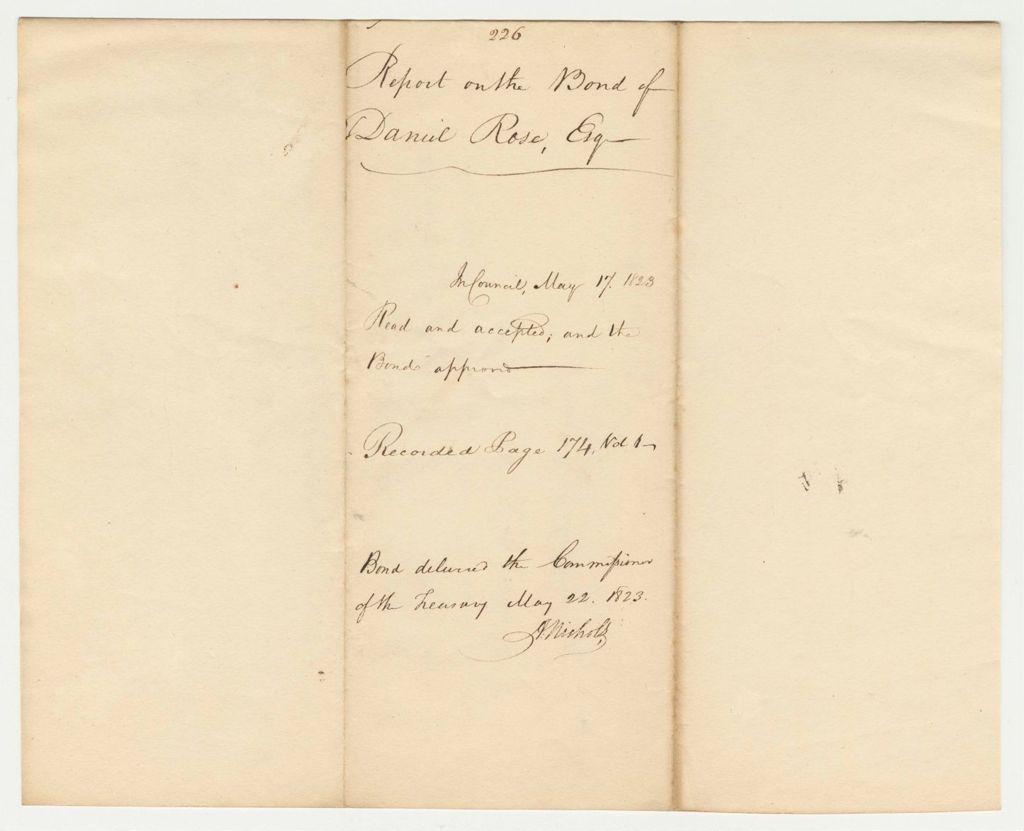 226
Report on the Bond of
Daniel Rose, Esq
In Council, May 17. 1823
Read and accepted; and the
Bond approved
Recorded Page 174, Vol 1
Bond delivered the Commissioner
of the Treasury May 22. 1823.
Nichols